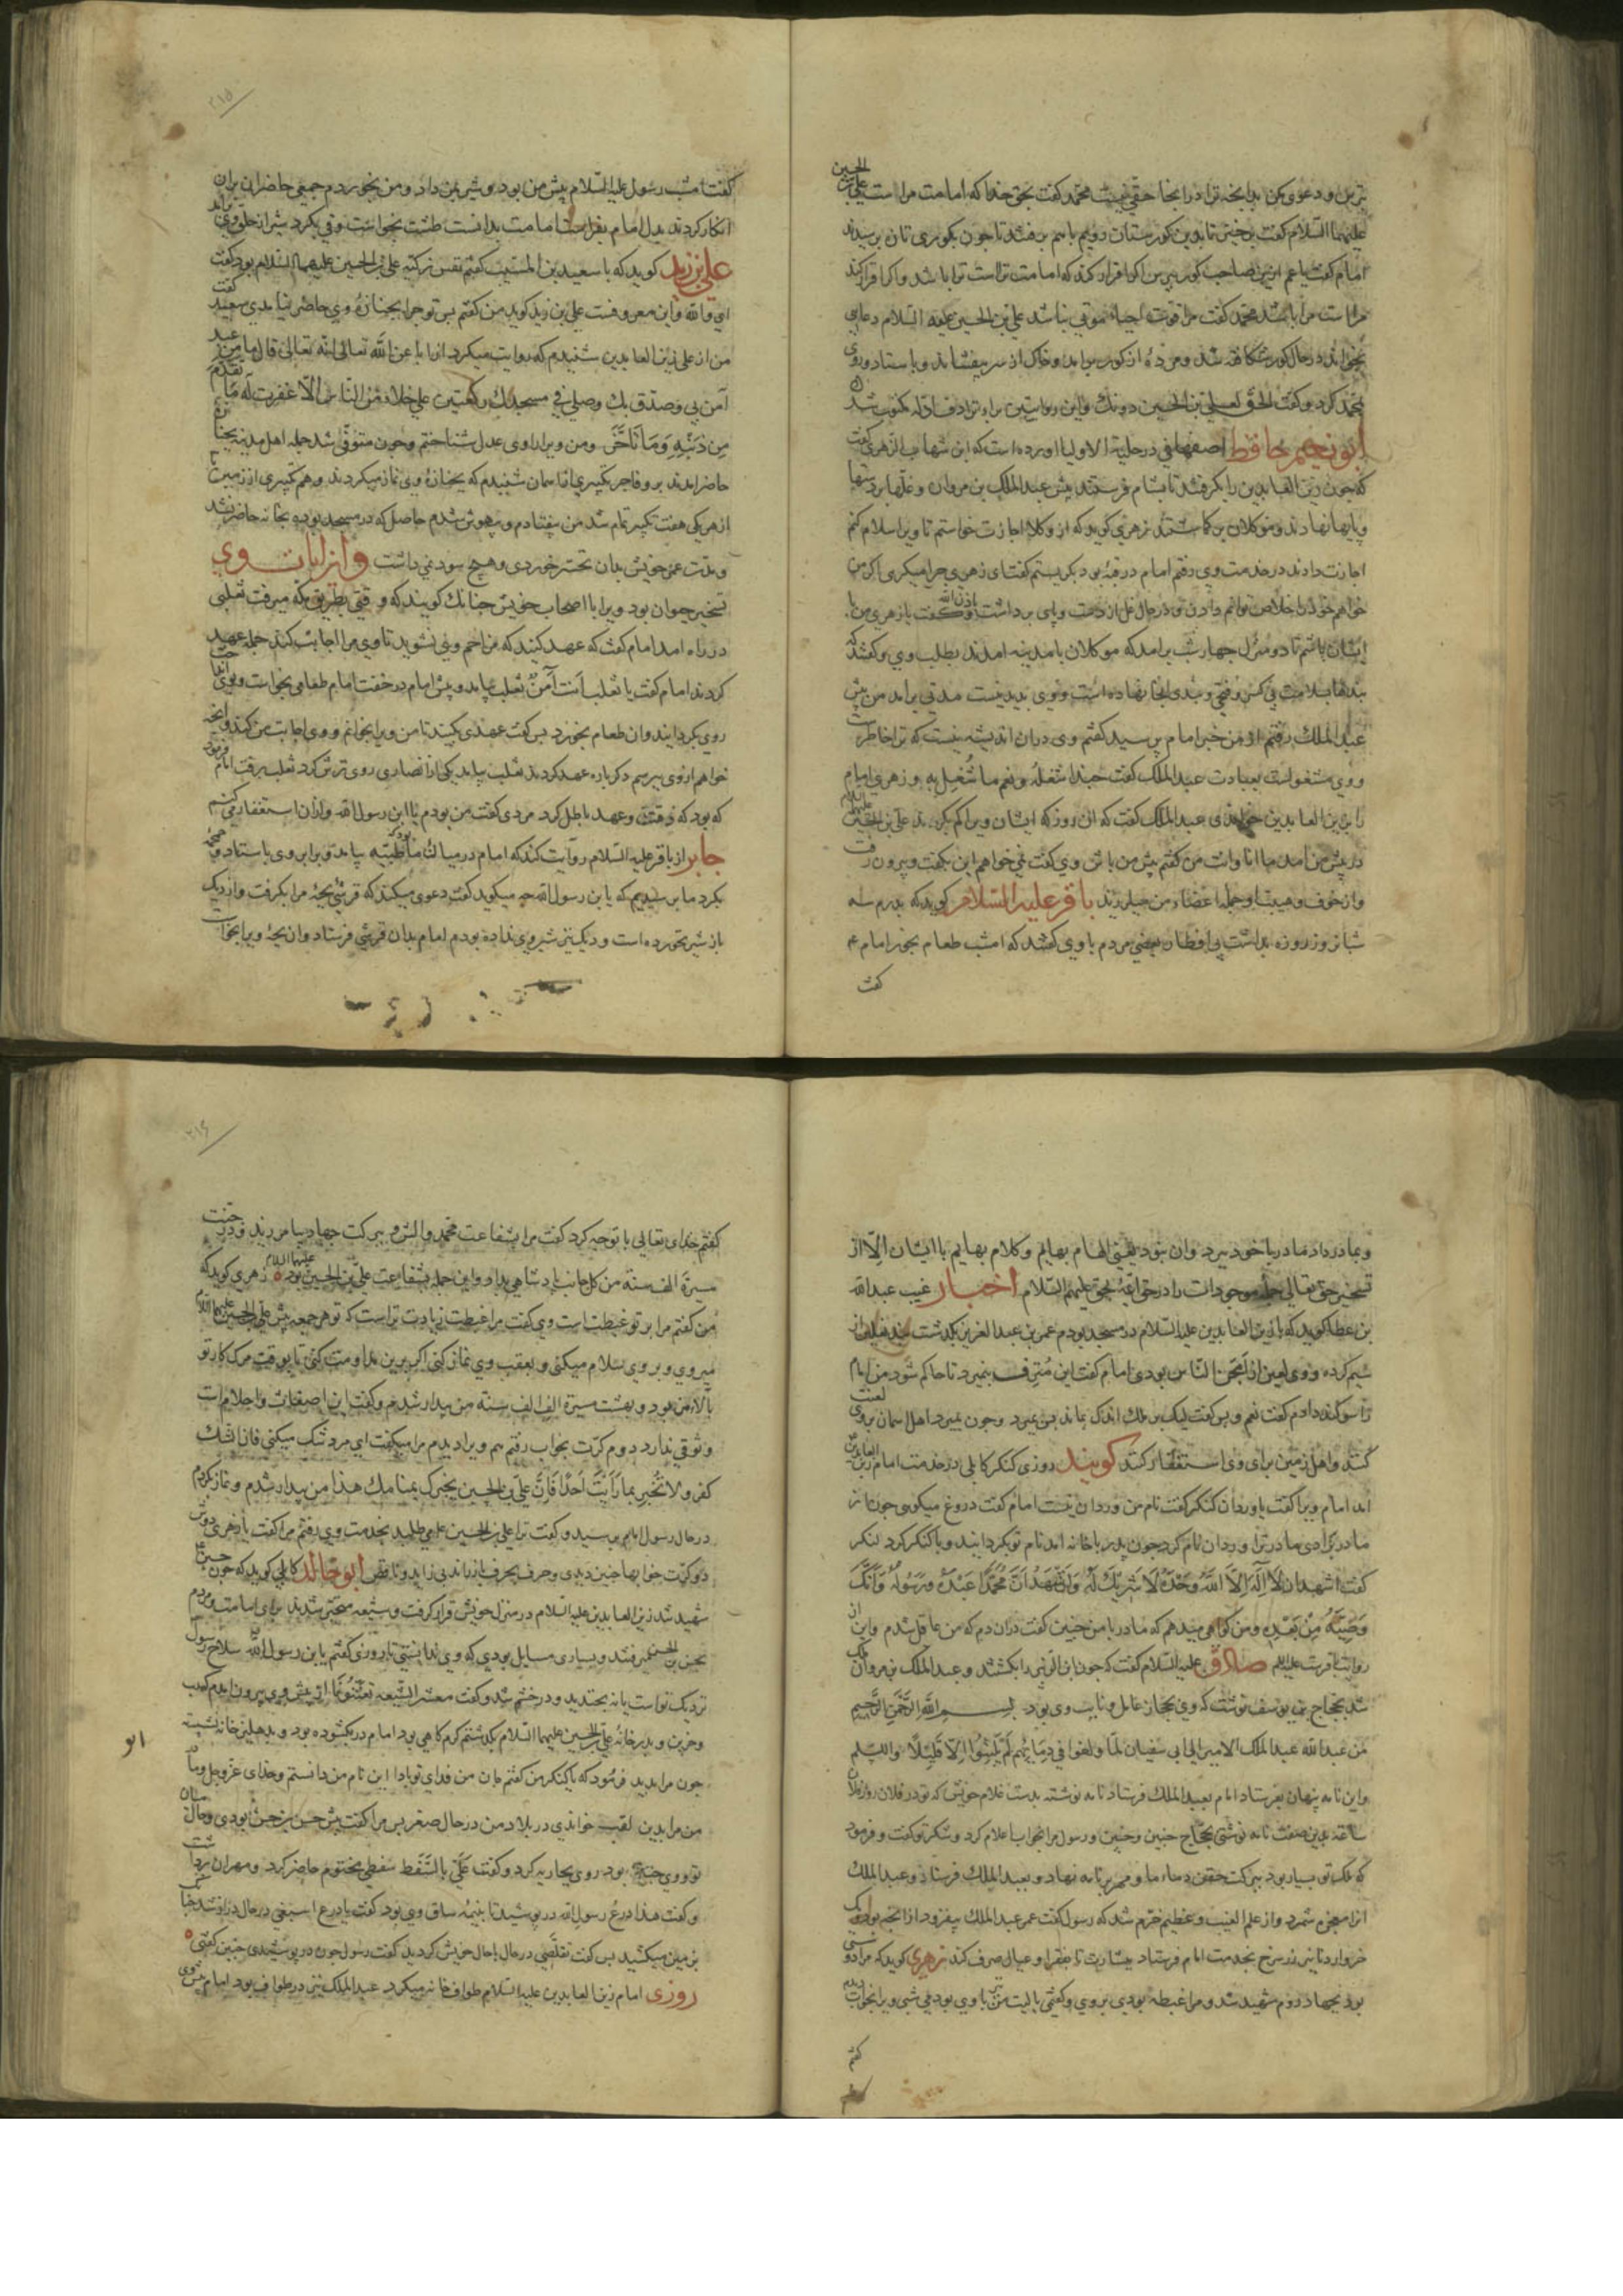 بترس و دعوی مکن بدانچه ترا در انجا حقی نیست محمد گفت بحق خدا که امامت مراست علی بن الحسین
علیهما السلام گفت برخیز تا بدین کورستان رویم باهم برفتند تا چون بکوری تازه رسیدند
امام گفت یا عم ازین صاحب کور بپرس اکر اقرار کند که امامت تراست ترا باشد واکر اقرار کند
مراست مرا باشد محمد گفت مرا قوت احیاء موتی نباشد علی بن الحسین علیه السلام دعایی
بخواند در حال کور شکافته شد ومرده از کور برامد وخاک از سر بیفشاند وباستاد وروی
بمحمد کرد وگفت الحق لعلی بن الحسین دونک واین روایتین
ابو نعیم حافظ اصفهانی در حلیة الاولیا اورده است که ابن شهاب الزهری گفت
که چون زین العابدین را بگرفتند تا بشام فرستند پیش عبدالملک بن مروان وغلها بر دستها
وپایها نهادند وموکلان بر کماشتند زهری کوید که از وکلا اجازت خواستم تا ویرا سلام کنم
اجازت دادند در خدمت وی رفتم امام در قبهٔ بود بکریستم گفت ای زهری چرا میکری اکر من
خواهم خود را خلاص توانم دادن ودر حال غل از دست وپای برداشت باذن الله وگفت یا زهری من با
ایشان باشم تا دو منزل چهار شب برامد که موکلان با مدینه امدند بطلب وی وگفتند که
بندها بسلامت
عبدالملک رفتم از من خبر امام پرسید گفتم وی دران اندیشه نیست که ترا خاطر است
ووی مشغولست بعبادت عبدالملک گفت حبذا شغله ونعم ما شغل به وزهری امام
را زین العابدین خواندی عبدالملک گفت که ان روز که ایشان ویرا کم کردند علی بن الحسین علیهما السلام
در پیش من امد ما انا وانت من گفتم پیش من باش وی گفت نمی خواهم این بگفت وبیرون رفت
واز خوف وهیبت او جمله اعضاء من میلرزید باقر علیه السلام کوید که پدرم سه
شبانروز روزه بداشت بی افطار بعضی مردم با وی گفتند که امشب طعام بخور امام عم
گفت
۲۱۵
گفت امشب رسول علیه السلام پیش من بود وشیر بمن داد ومن بخوردم جمعی حاضران بران
انکار کردند بدل امام بفراست امامت بدانست طشت بخواست وقی بکرد شیر از حلق وی برامد
علی بن زید کوید که با سعید بن المسیب گفتم نفس زکیه علی بن الحسین علیهما السلام بود گفت
ای والله واین معروفست علی بن زید کوید من گفتم پس تو چرا بجنازهٔ وی حاضر نیامدی سعید گفت
من از علی زین العابدین شنیدم که روایت میکرد از ابا عن الله تعالی انه تعالی قال ما من عبد
آمن بی وصدق بک وصلی فی مسجدک رکعتین علی خلاء من الناس الا غفرت له ما تقدم
من ذنبه وما تاخر ومن ویرا راوی عدل شناختم وچون متوفی شد جمله اهل مدینه بجنازه
حاضر امدند بر وفاجر تکبیری از اسمان شنیدم که بجنازهٔ وی نماز میکردند وهم تکبیری از زمین تا
از هر یکی هفت تکبیر تمام شد من بیفتادم وبیهوش شدم حاصل که در مسجد بودم بجنازه حاضر نشد
ومدت عمر خویش بدان تحسر خوردی وهیچ سود نمی داشت واز ایات وی
تسخیر حیوان بود ویرا با اصحاب خویش چنانک کویند که وقتی بطریق مکه میرفت ثعلبی
در راه امد امام گفت که عهد کنید که مزاحم وی نشوید تا وی مرا اجابت کند جمله عهد
کردند امام گفت یا ثعلب انت آمن ثعلب بیامد وپیش امام در خفت امام طعامی بخواست وبوی انداخت
روی بکردانید وان طعام بخورد پس گفت عهدی بکنید تا من ویرا بخوانم ووی اجابت من کند وانچه
خواهم از وی بپرسم دکرباره عهد کردند ثعلب بیامد یکی از انصاری روی ترش کرد ثعلب برفت امام فرمود
که بود که وعهد باطل کرد مردی گفت من بودم یا ابن رسول الله وازان استغفار میکنم
جابر از باقر علیه السلام روایت کند که امام درمیان ما بود که ظبیه بیامد وبرابر وی باستاد وهمهمهٔ
بکرد ما پرسیدیم که یا بن رسول الله چه میکوید گفت دعوی میکند که قرشی بچهٔ مرا بکرفت واز دیک
باز شیر نخورده است ودیک نیز شیر وی نداده بودم امام بدان قرشی فرستاد وان بچهٔ ویرا بخواست
وبمادر داد مادر با خود ببرد وان نبود یعنی الهام بهایم وکلام بهایم با ایشان الا از
تسخیر حق تعالی جمله موجودات را در حق ائمهٔ بحق علیهم السلام اخبار غیب عبدالله
بن عطا کوید که با زین العابدین علیه السلام در مسجد بودم عمر بن عبدالعزیز بگذشت
سیم کرده ووی لعین از امجن الناس بودی امام گفت این مترف بنمیرد تا حاکم شود من امام
را سوکند دادم گفت نعم وپس گفت لیک بر ملک اندک بماند پس بمیرد وچون بمیرد اهل اسمان بر وی لعنت
کنند واهل زمین برای وی استغفار کنند کویند روزی کنکر کابلی در خدمت امام زین العابدین
امد امام ویرا گفت یا وردان کنکر گفت نام من وردان نیست امام گفت دروغ میکویی چون از
مادر بزادی مادر ترا وردان نام کرد چون پدر با خانه امد نام تو بکردانید وبا کنکر کرد کنکر
گفت اشهد ان لا اله الا الله وحده لا شریک له وان اشهد ان محمدا عبده ورسوله وانک
وصیه من بعده ومن کواهی میدهم که مادر با من چنین گفت دران دم که من عاقل شدم واین
روایت باقر است علیه السلم صادق علیه السلام گفت که چون ابن الزبیر را بکشتند وعبدالملک بن مروان ملک
شد بحجاج بن یوسف نوشت که وی بحجاز عامل ونایب وی بود بسم الله الرحمن الرحیم
من عبدالله عبدالملک الامیر الی ابی سفیان لما ولغوا فی دمایهم لم یلبثوا الا قلیلا والسلم
واین نامه پنهان بفرستاد امام بعبدالملک فرستاد نامه نوشته بدست غلام خویش که تو در فلان روز فلان
ساعة بدین صفت نامه نوشتی بحجاج چنین وچنین ورسول مرا بخواب اعلام کرد وشکر تو گفت وفرمود
که ملک تو بسیار بود ببرکت حقن دماء ما ومهر بر نامه نهاد وبعبدالملک فرستاد وعبدالملک
انرا معجزه شمرد واز علم الغیب وعظیم خرم شد که رسول گفت عمر عبدالملک بیفزود از انچه بود ویک
خروار دنانیر زر سرخ بخدمت امام فرستاد ببشارت تا بفقرا وعیال صرف کند زهری کوید که مرا دوستی
بود بجهاد روم شهید شد ومرا غبطه بودی بر وی وگفتمی یا لیت من نیز با وی بودمی شبی ویرا بخواب دیدم
گفتم
۲۱۶
گفتم خدای تعالی با تو چه کرد گفت مرا بشفاعت محمد وآلش وببرکت جهاد بیامرزید ودر جنت
مسیرة الف سنة من کل جانب پادشاهی بداد واین جمله بشفاعت علی بن الحسین بود علیهما السلام زهری کوید که
من گفتم مرا بر تو غبطت است وی گفت مرا غبطت زیادت تراست که تو هر جمعه پیش علی بن الحسین علیهما السلام
میروی وبر وی سلام میکنی وبعقب وی نماز کنی اکر برین مداومت کنی تا بوقت مرک کار تو
بالاء من بود وبهشت مسیرة الف الف سنة من بیدار شدم وگفتم این اضغاث واحلام است
وثوقی ندارد دوم کرت بخواب رفتم هم ویرا دیدم مرا میگفت ای مرد شک میکنی فان الشک
کفر ولا تخبر بما رایت احدا فان علی بن الحسین یخبرک بمنامک هذا من بیدار شدم ونماز بکردم
در حال رسول امام برسید وگفت ترا علی بن الحسین علم می طلبد بخدمت وی رفتم مرا گفت یا زهری دوش
دو کرت خوابها چنین دیدی وحرف بحرف باز راند بی زاید وناقص ابو خالد کابلی کوید که چون حسین
شهید شد زین العابدین علیه السلام در منزل خویش قرار کرفت وشیعه متحیر شدند برای امامت ومردم
بحسن بن الحسن میرفتند وبسیاری مسایل بودی که وی ندانستی تا روزی گفتم یا بن رسول الله سلاح رسول
نزدیک تو است یا نه بخندید ودر خشم شد وگفت معشر الشیعه تعنتونا از پیش وی بیرون امدم کییب
وحزین وبدر خانهٔ علی بن الحسین علیهما السلام بگذشتم کرم کاهی بود امام در بکشوده بود وبدهلیز خانه نشسته
چون مرا بدید فرمود که یا کنکر من گفتم جان من فدای تو بادا این نام من دانستم وخدای عزوجل ومادر
من مرا بدین لقب خواندی در بلاد من در حال صغر پس مرا گفت پیش حسن بن حسن بودی وحال میان
تو ووی چنین بود روی بجاریه کرد وگفت علی بالسفط سفطی مختوم حاضر کرد ومهر ازان برداشت
وگفت هذا درع رسول الله در پوشید تا بنیمهٔ ساق وی بود گفت یا درع اسبغی در حال دراز شد چنانک
بزمین میکشید پس گفت تقلصی در حال باحال خویش کردید گفت رسول چون در پوشیدی چنین گفتی
روزی امام زین العابدین علیه السلام طواف خانه میکرد عبدالملک نیز در طواف بود امام پیش وی
ابو